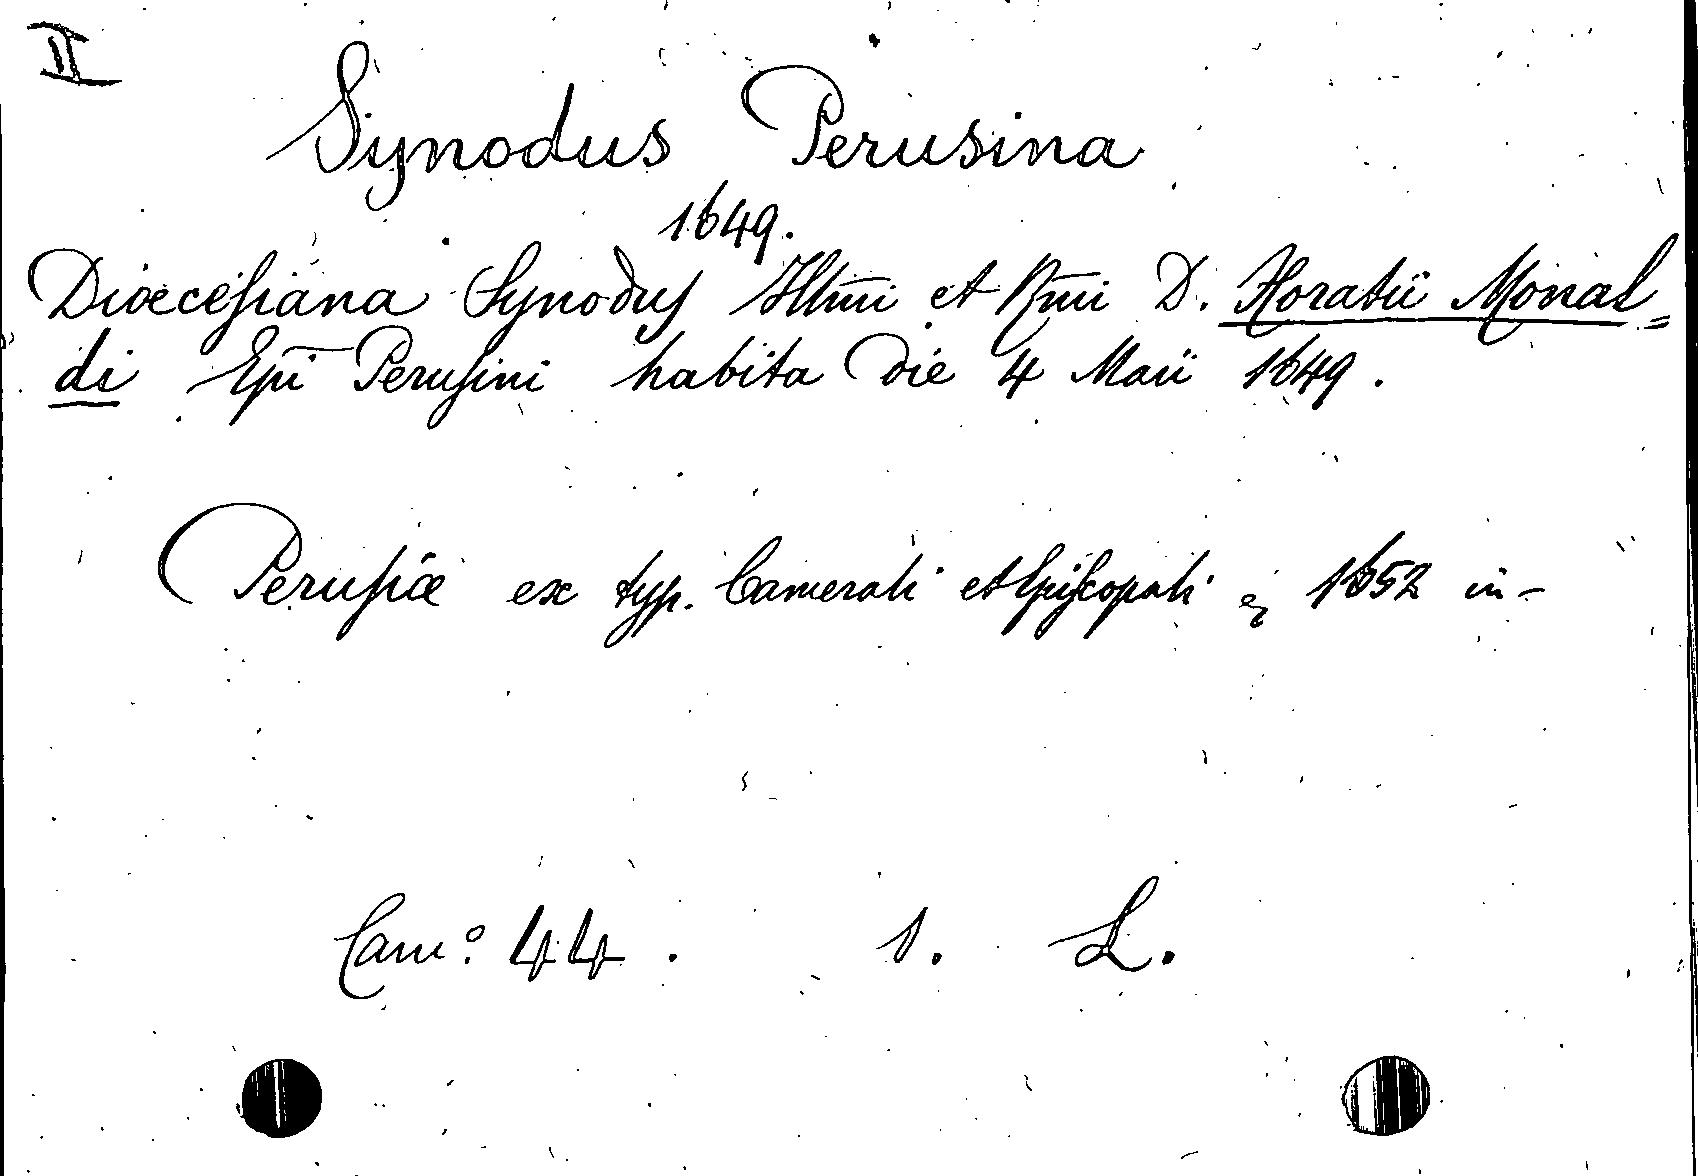 II
Synodus Perusina
1649.
Diœcesiana Synodus Illm̄i et Rm̄i D. Horatii Monal=
di Ep̄i Perusini habita die 4 Maii 1649.
Perusiæ ex typ. Camerali et Episcopali 1652 in-
Cam.º 44. 1. L.